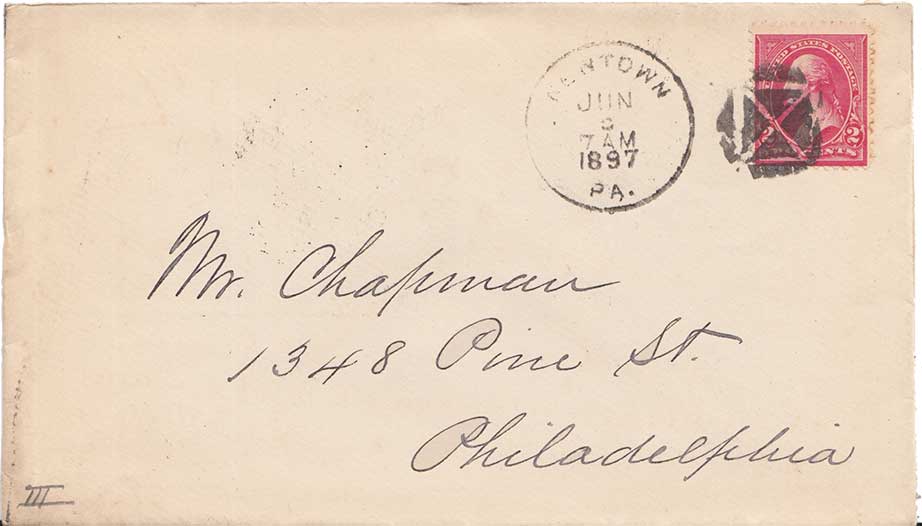 UNITED STATES POSTAGE
2 2
CENTS
JUN
7 AM
1897
PA.
Mr. Chapman
1348 Pine St.
Philadelphia
III